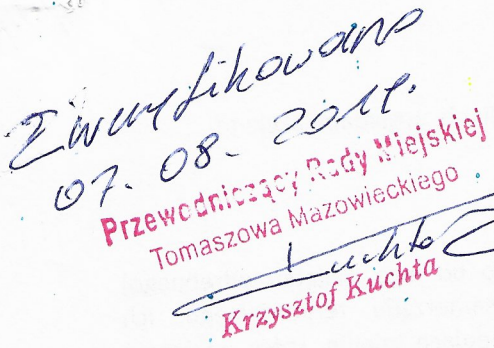 Zweryfikowano
07. 08. 2017.
Przewodniczący Rady Miejskiej
Tomaszowa Mazowieckiego
Kuchta
Krzysztof Kuchta